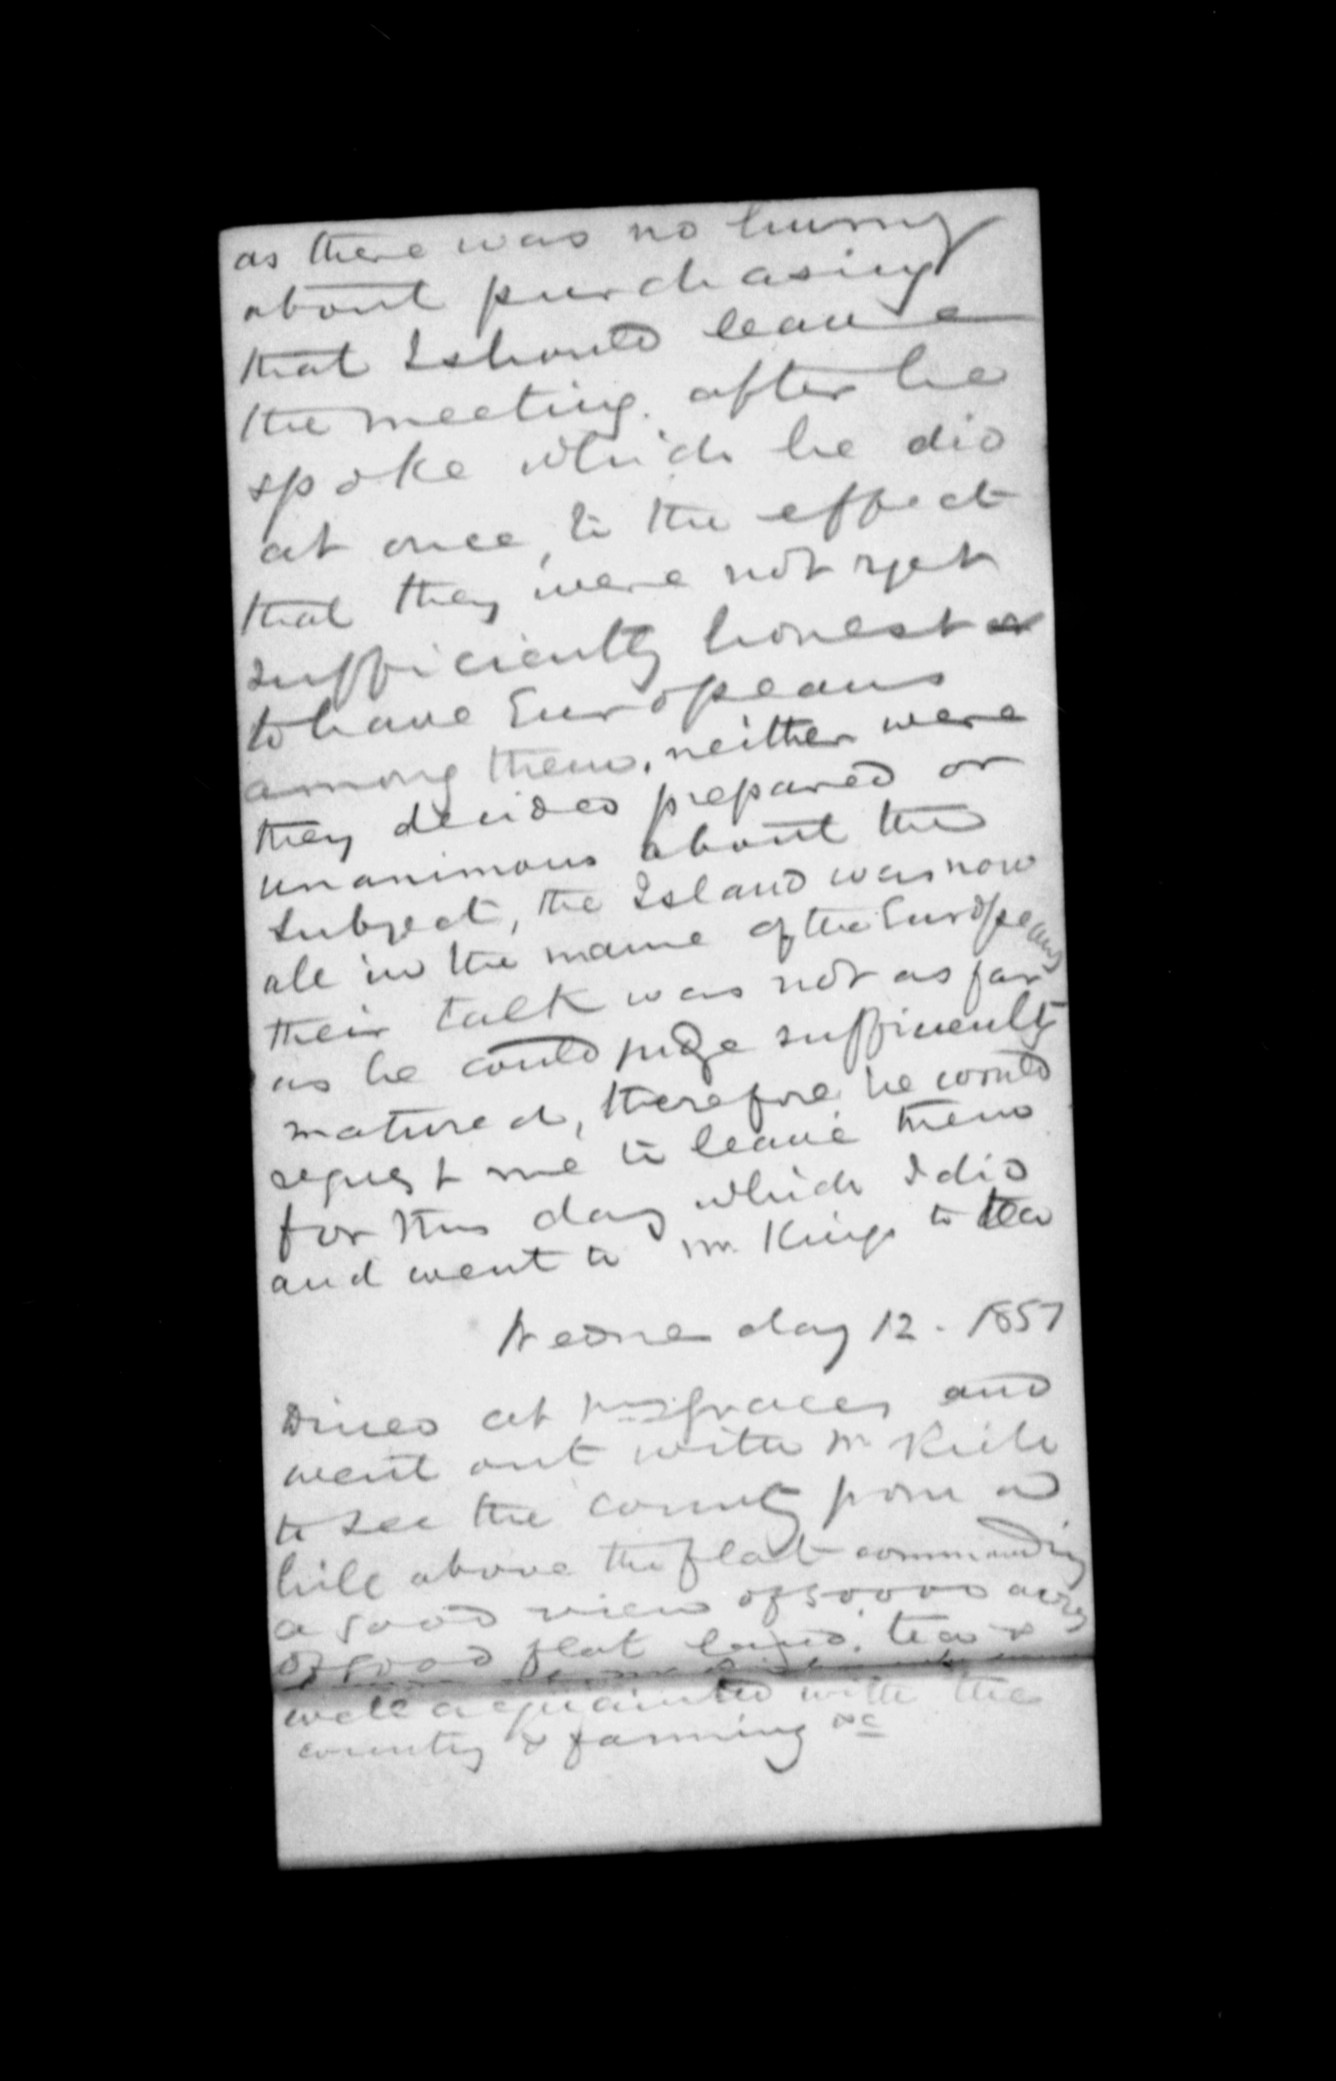 as there was no hurry
about purchasing
that I should leave
the meeting. after he
spoke which he did
at once, to the effect
that they were not yet
sufficiently honest
to have Europeans
among them, neither were
they decided prepared or
unanimous about the
subject, the Island was now
all in the name of the Europeans
their talk was not as far
as he could judge sufficiently
matured, therefore he would
request me to leave them
for this day which I did
and went to Mr. Kings to tea
Wednesday 12. 1857
Dined at Graces and
went out with Mr
to see the country from a
hill above the flat commanding
a good view of 50000 acres
of good flat land. tea &
well acquainted with the
country & farming &c